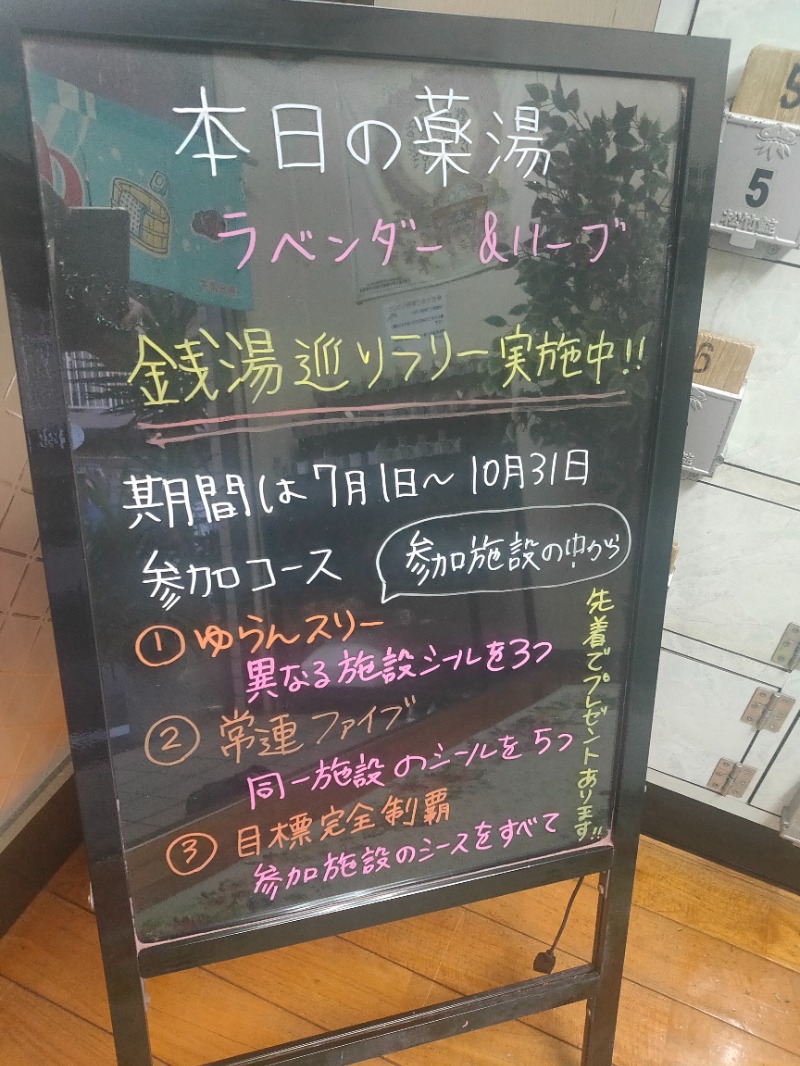 本日の薬湯
ラベンダー &ハーブ
銭湯巡りラリー実施中!!
期間は7月1日~10月31日
参加コース
参加施設の中から
①ゆらんスリー
異なる施設シールを3つ
②常連ファイブ
同一施設のシールを5つ
③目標完全制覇
参加施設のシースをすべて
先着でプレゼントあります!!
5
5
松竹錠
6